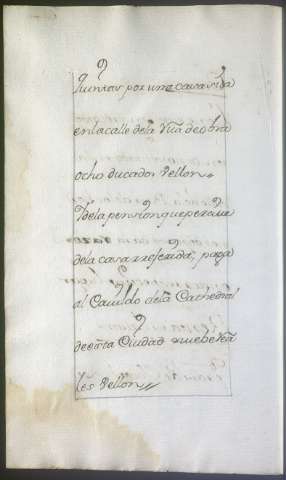 Quintas por una casa sita
en la calle de la Vña de obra
ocho ducados Vellon,,
Y de la pension que percive
de la casa referida, paga
al Cavildo de sta Cathedral
de esta Ciudad nuebe Rea
les Vellon,,